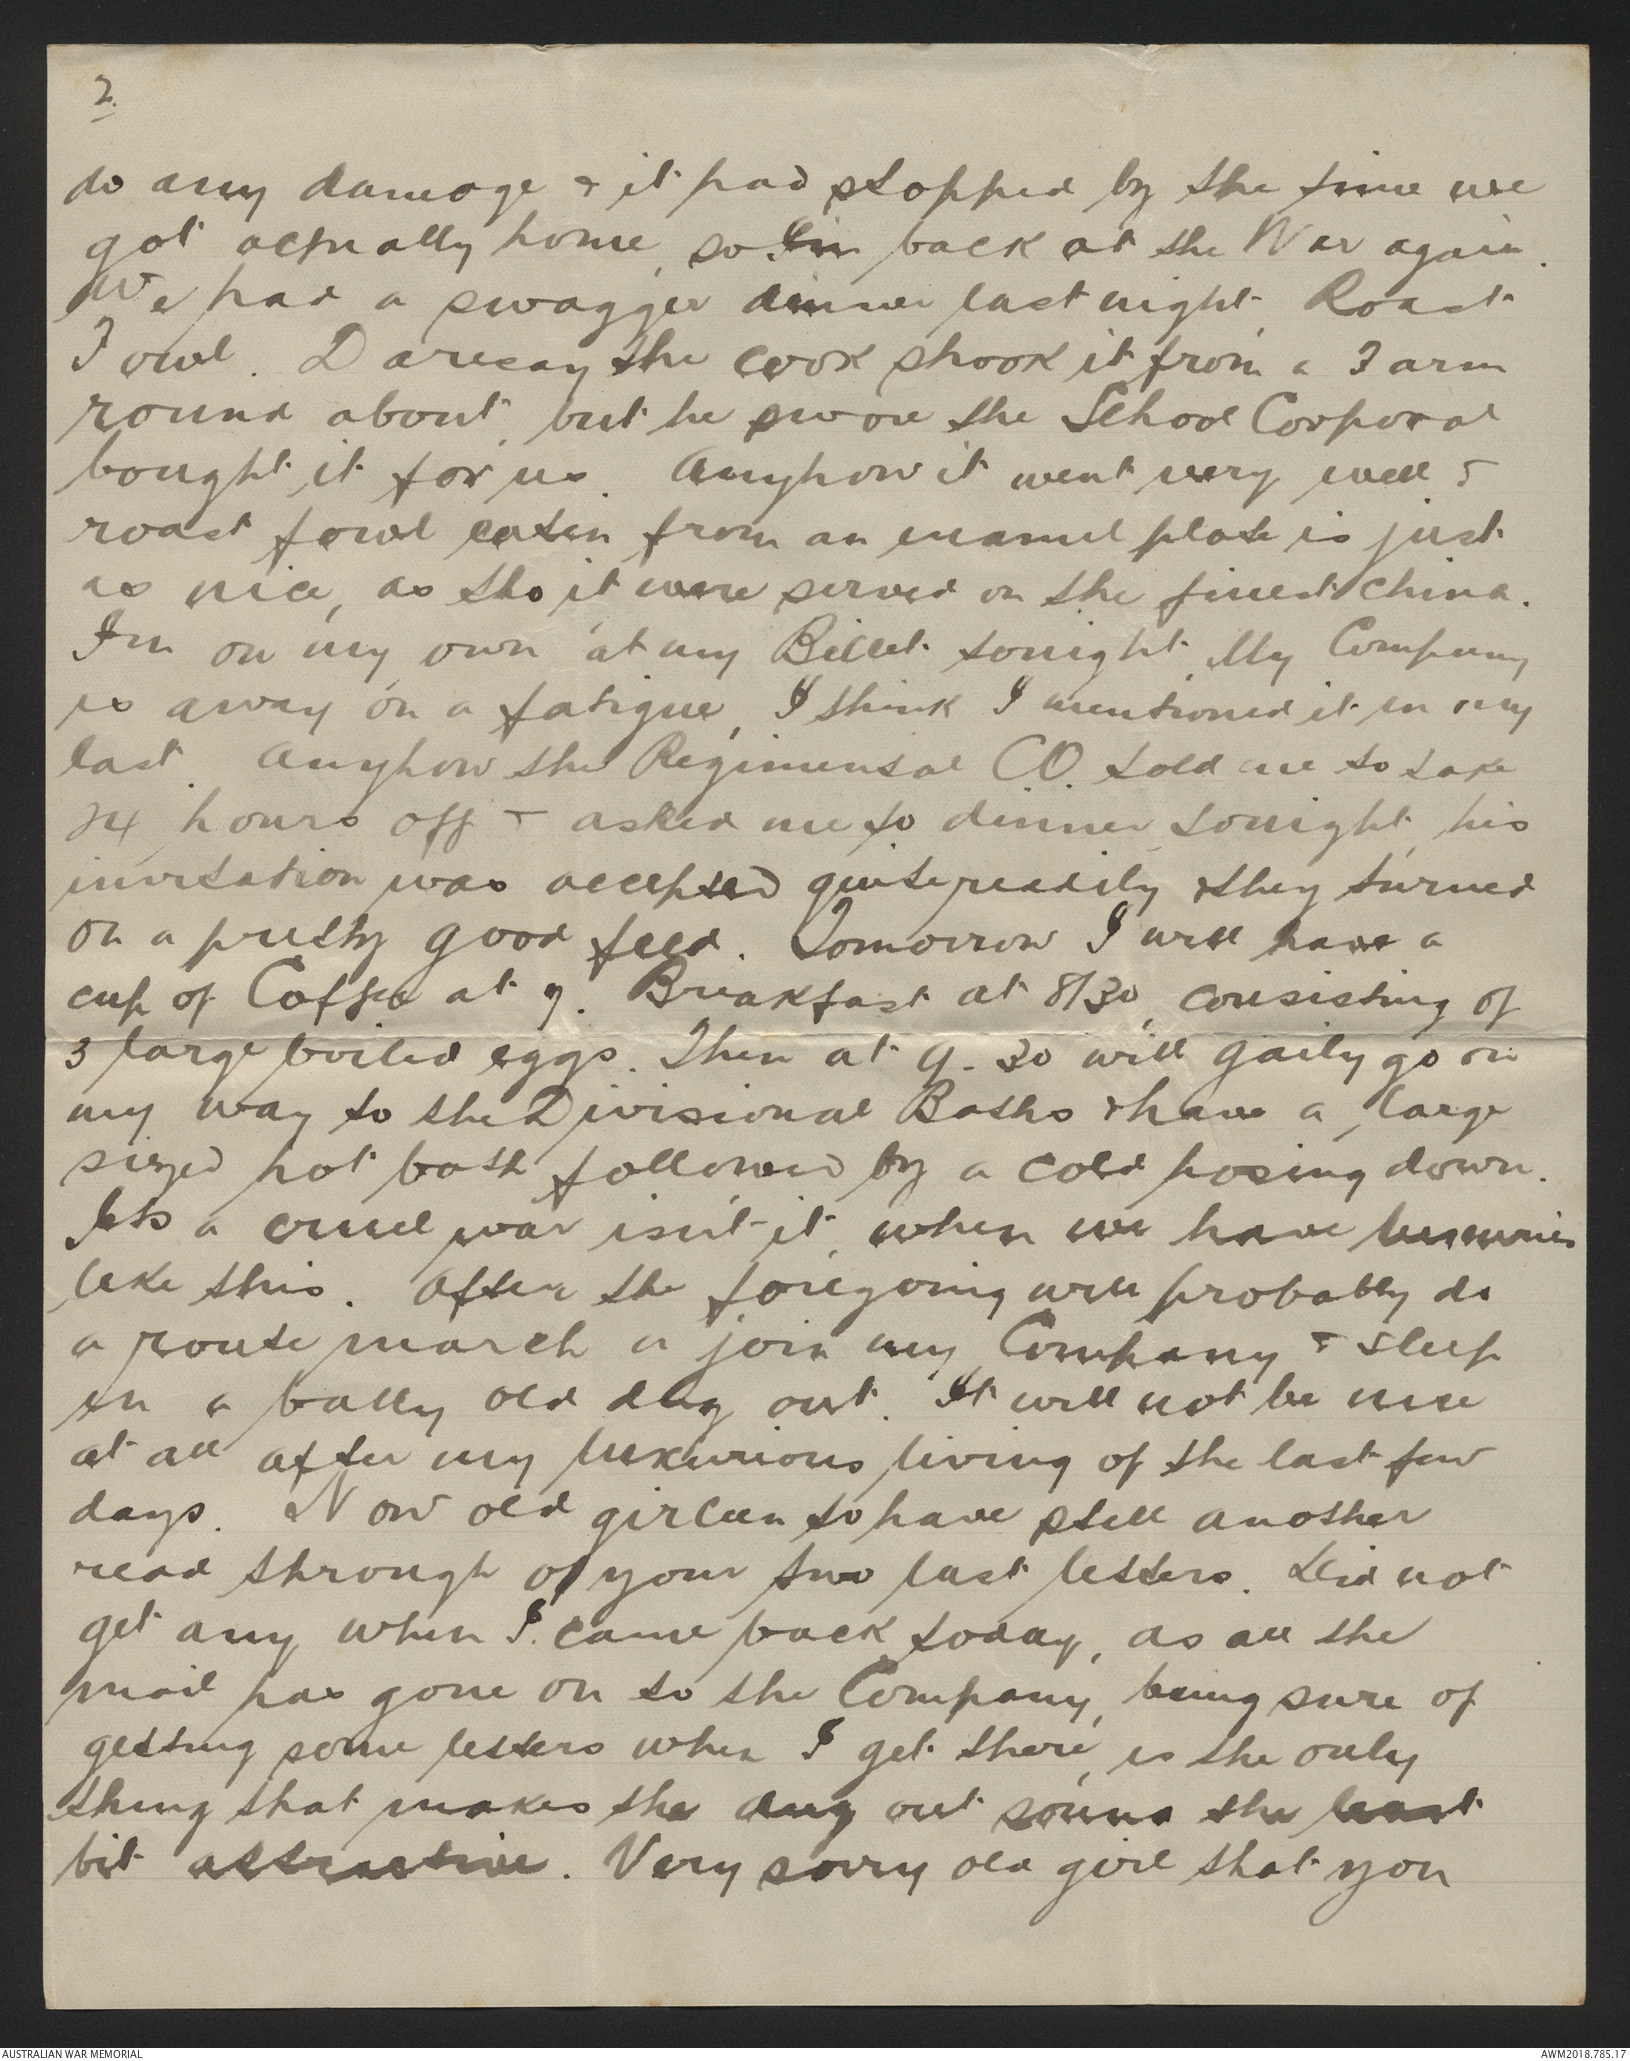 2.
do any damage & it had stopped by the time we
got actually home, so I'm back at the War again.
We had a swagger dinner last night. Roast
Fowl. Daresay the cook shook it from a Farm
round about, but he swore the School Corporal
bought it for us. Anyhow it went very well &
roast fowl eaten from an enamel plate is just
as nice, as tho it were served on the finest China.
I'm on my own at my Billet tonight. My Company
is away on a fatigue, I think I mentioned it in my
last. Anyhow the Regimental CO. told me to take
24 hours off & asked me to dinner tonight, his
invitation was accepted quite readily & they turned
on a pretty good feed. Tomorrow I will have a
cup of Coffee at 7. Breakfast at 8/30, consisting of
3 large boiled eggs. Then at 9.30 will gaily go on
my way to the Divisional Baths & have a large
sized hot bath followed by a cold hosing down.
Its a cruel war isn't it, when we have luxuries
like this. After the foregoing will probably do
a route march & join my Company & sleep
in a bally old dug out. It will not be nice
at all after my luxurious living of the last few
days. Now old girleen to have still another
read through of your two last letters. Did not
get any when I came back today, as all the
mail has gone on to the Company, being sure of
getting some letters when I get there, is the only
thing that makes the dug out sound the least
bit attractive. Very sorry old girl that you
AUSTRALIAN WAR MEMORIAL
AWM2018.785.17